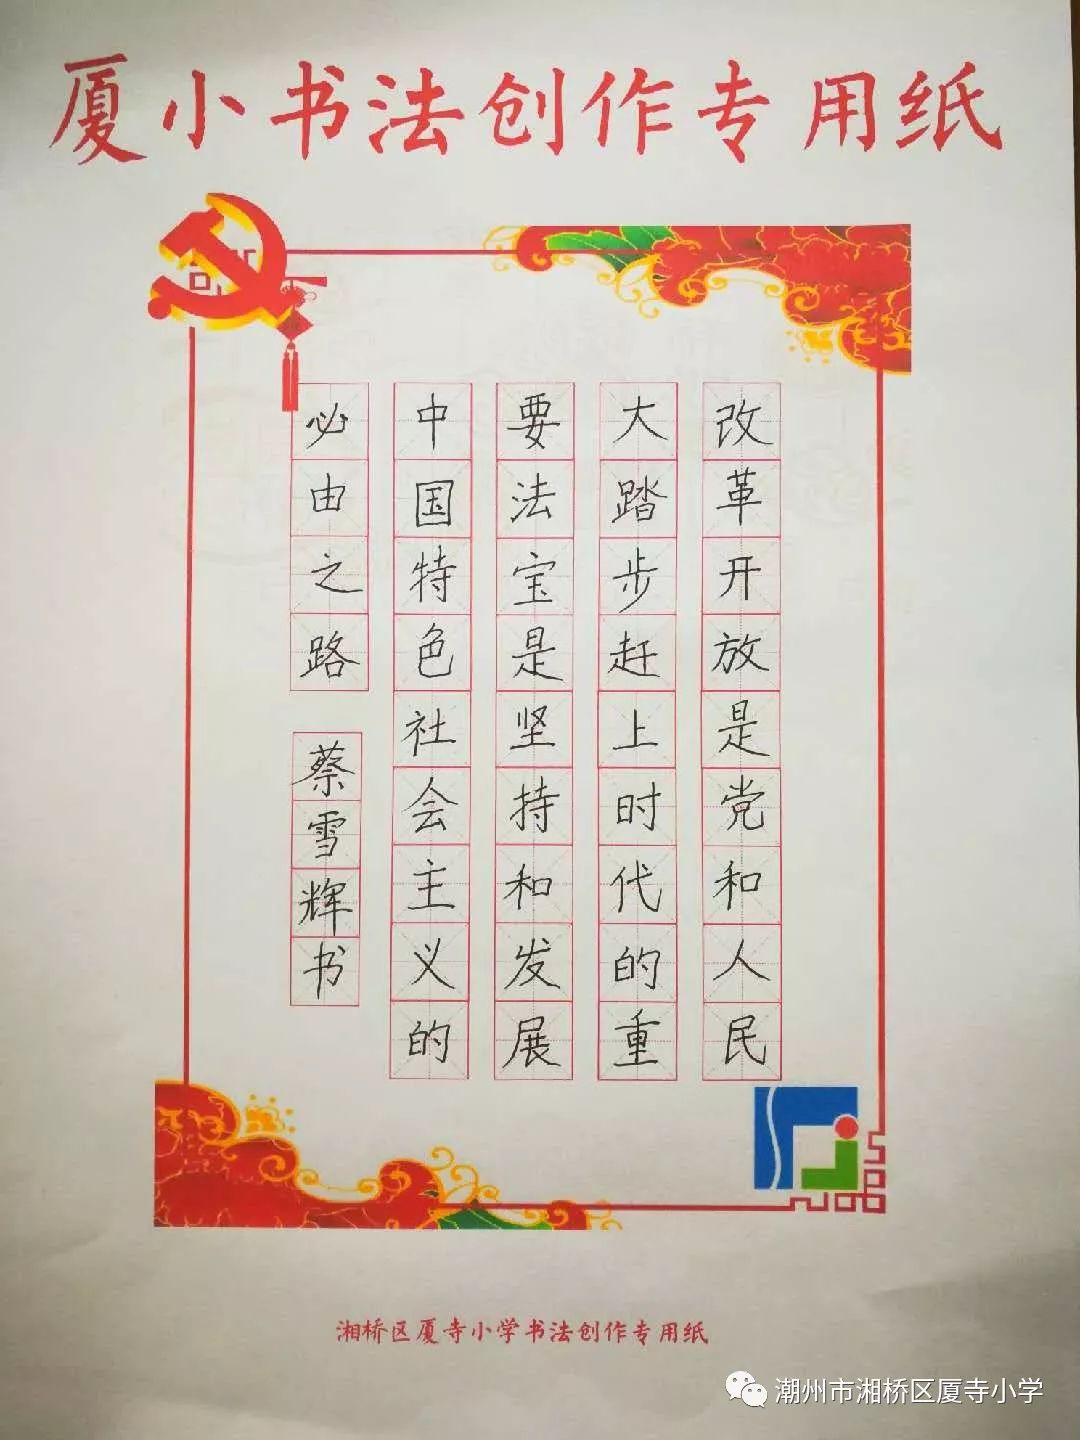 厦小书法创作专用纸
改革开放是党和人民
大踏步赶上时代的重
要法宝是坚持和发展
中国特色社会主义的
必由之路
蔡雪辉书
湘桥区厦寺小学书法创作专用纸
潮州市湘桥区厦寺小学